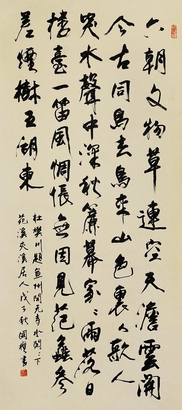 六朝文物草連空天澹雲閑
今古同鳥去鳥來山色裏人歌人
哭水聲中深秋簾幕家〻雨落日
樓臺一笛風惆悵無因見范蠡參
差煙樹五湖東
杜樊川題宣州開元寺水閣〻下
宛溪夾溪居人戊子秋書